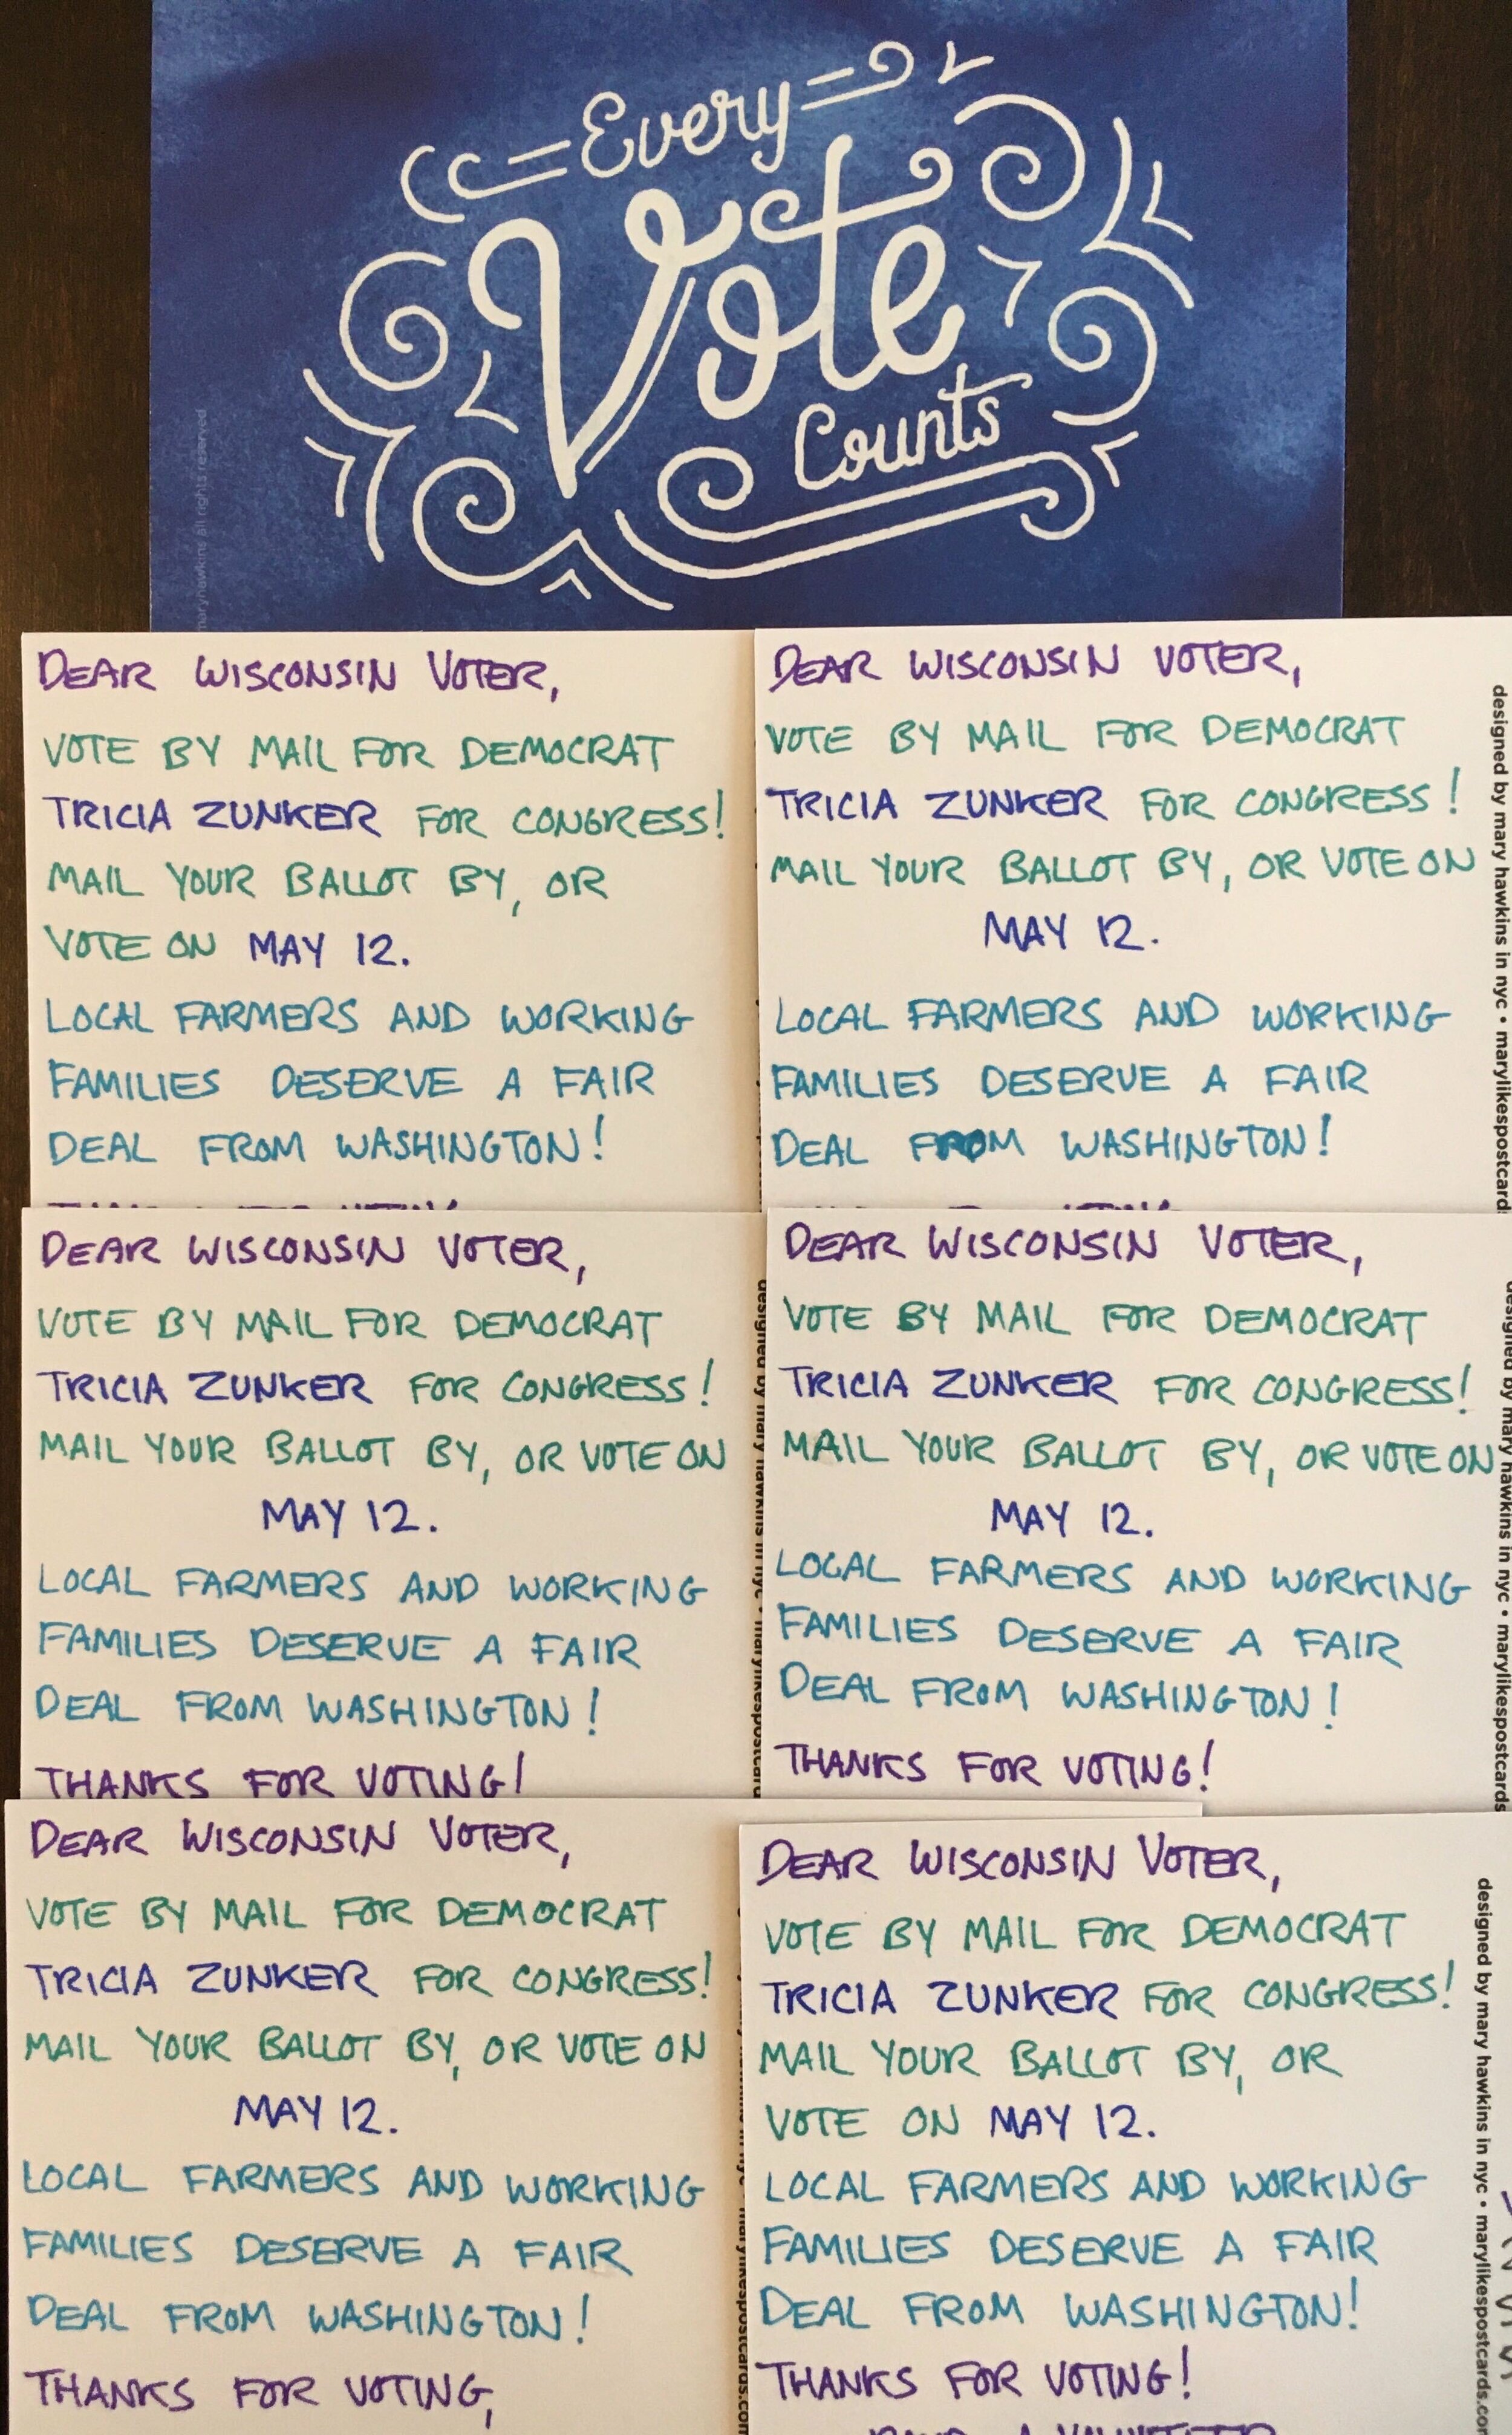 Every
Vote
Counts
maryhawkins all rights reserved
DEAR WISCONSIN VOTER,
VOTE BY MAIL FOR DEMOCRAT
TRICIA ZUNKER FOR CONGRESS!
MAIL YOUR BALLOT BY, OR
VOTE ON MAY 12.
LOCAL FARMERS AND WORKING
FAMILIES DESERVE A FAIR
DEAL FROM WASHINGTON!
DEAR WISCONSIN VOTER,
VOTE BY MAIL FOR DEMOCRAT
TRICIA ZUNKER FOR CONGRESS!
MAIL YOUR BALLOT BY, OR VOTE ON
MAY 12.
LOCAL FARMERS AND WORKING
FAMILIES DESERVE A FAIR
DEAL FROM WASHINGTON!
designed by mary hawkins in nyc • marylikespostcards
DEAR WISCONSIN VOTER,
VOTE BY MAIL FOR DEMOCRAT
TRICIA ZUNKER FOR CONGRESS!
MAIL YOUR BALLOT BY, OR VOTE ON
MAY 12.
LOCAL FARMERS AND WORKING
FAMILIES DESERVE A FAIR
DEAL FROM WASHINGTON!
THANKS FOR VOTING!
DEAR WISCONSIN VOTER,
VOTE BY MAIL FOR DEMOCRAT
TRICIA ZUNKER FOR CONGRESS!
MAIL YOUR BALLOT BY, OR VOTE ON
MAY 12.
LOCAL FARMERS AND WORKING
FAMILIES DESERVE A FAIR
DEAL FROM WASHINGTON!
THANKS FOR VOTING!
designed by mary hawkins in nyc • marylikespostcards
DEAR WISCONSIN VOTER,
VOTE BY MAIL FOR DEMOCRAT
TRICIA ZUNKER FOR CONGRESS!
MAIL YOUR BALLOT BY, OR VOTE ON
MAY 12.
LOCAL FARMERS AND WORKING
FAMILIES DESERVE A FAIR
DEAL FROM WASHINGTON!
THANKS FOR VOTING,
DEAR WISCONSIN VOTER,
VOTE BY MAIL FOR DEMOCRAT
TRICIA ZUNKER FOR CONGRESS!
MAIL YOUR BALLOT BY, OR
VOTE ON MAY 12.
LOCAL FARMERS AND WORKING
FAMILIES DESERVE A FAIR
DEAL FROM WASHINGTON!
THANKS FOR VOTING!
designed by mary hawkins in nyc • marylikespostcards.com